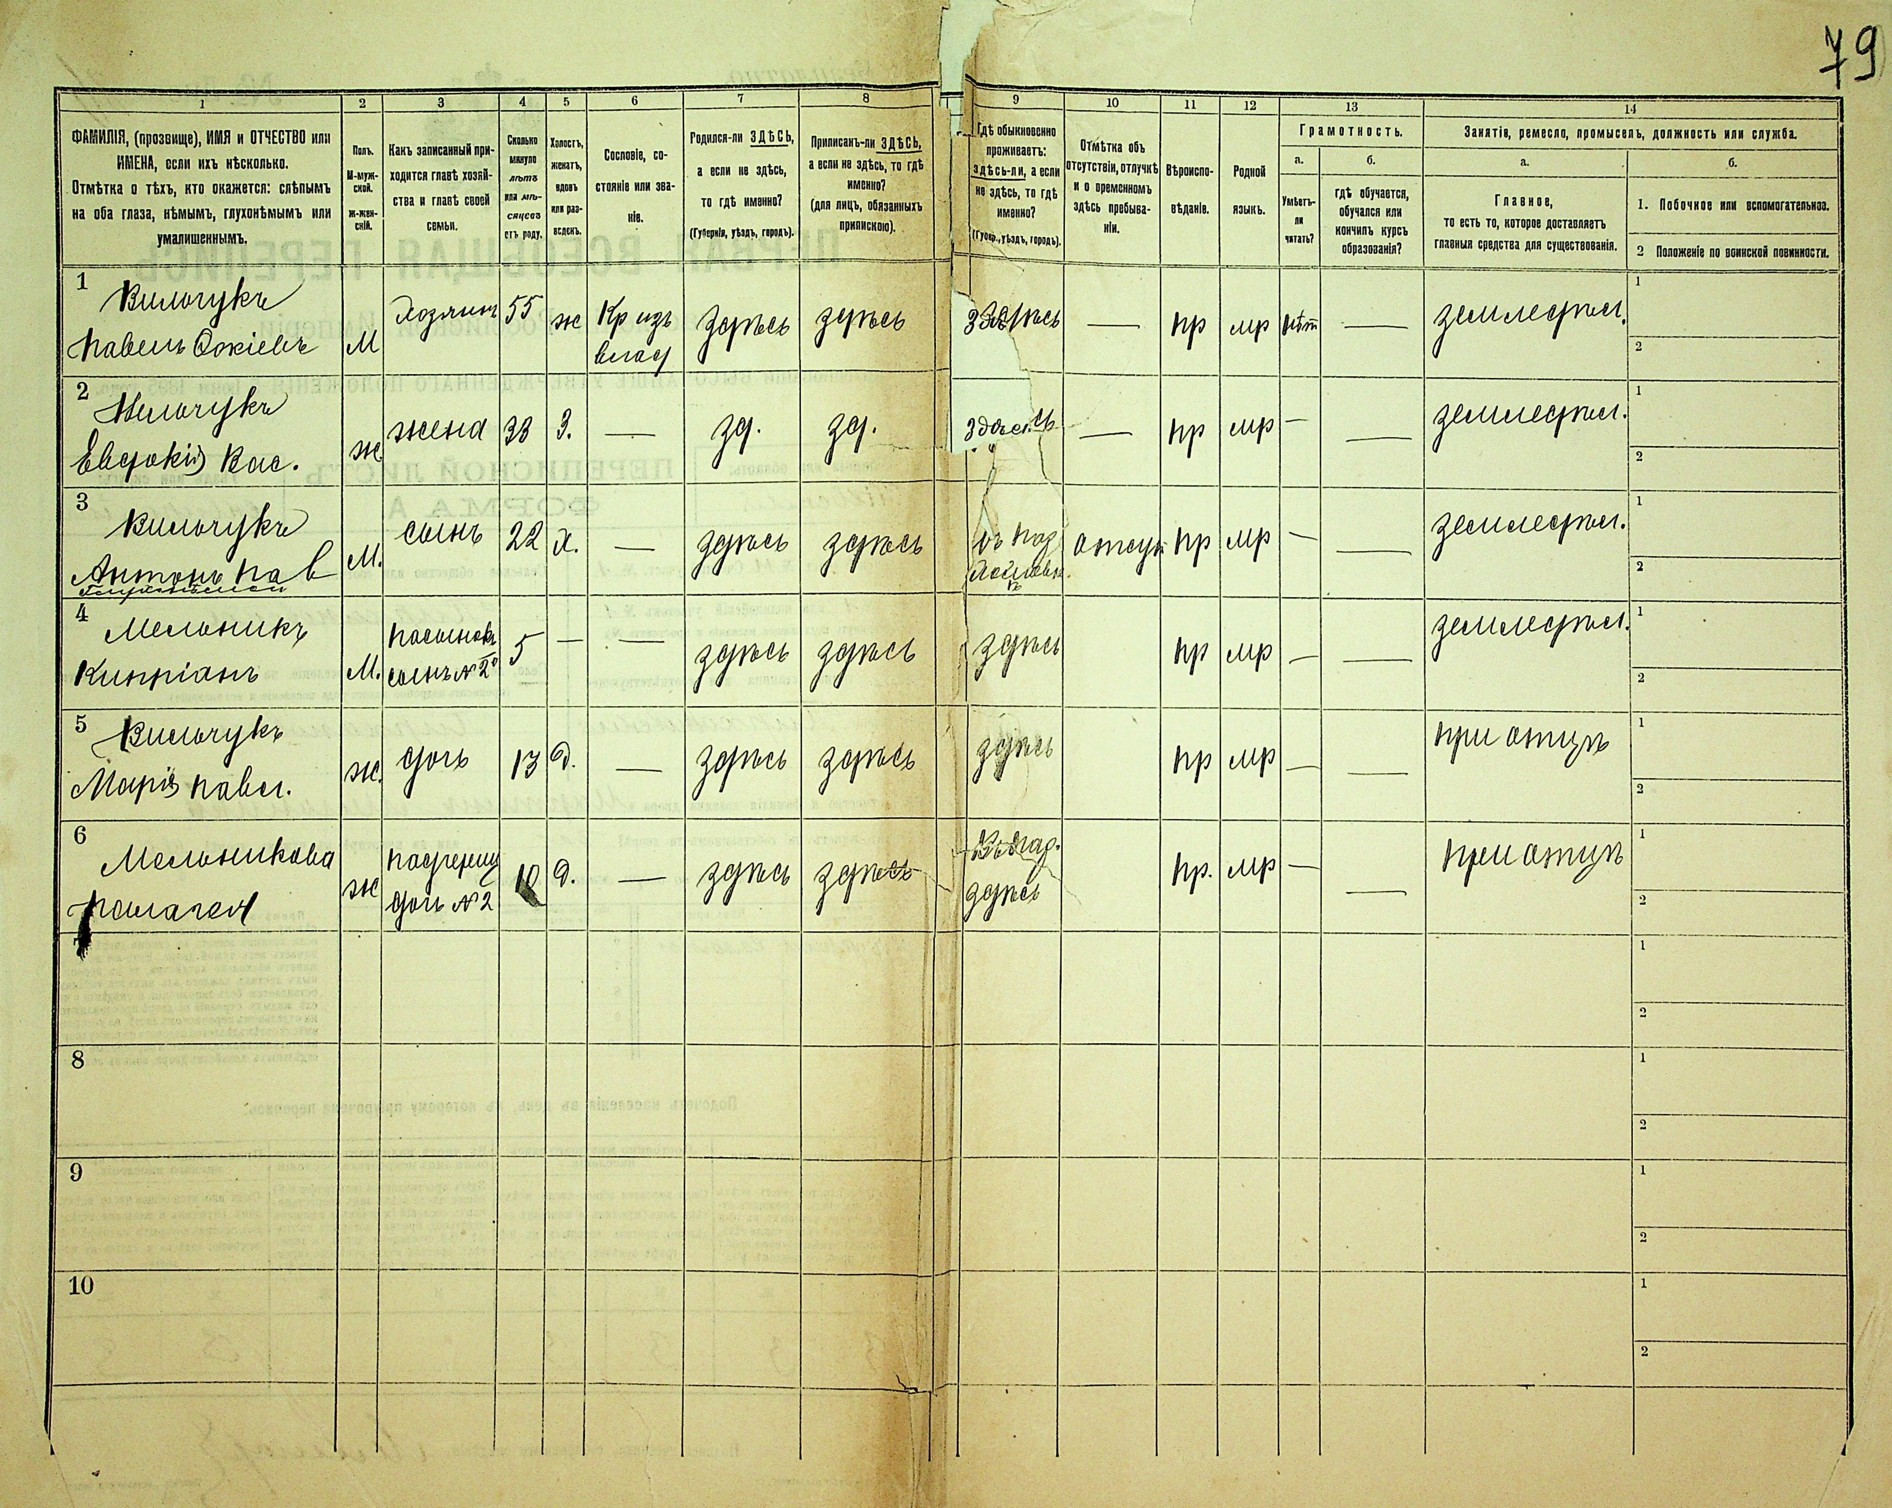 79
1 2 3 4 5 6 7 8 9 10 11 12 13 14
ФАМИЛІЯ, (прозвище), ИМЯ и ОТЧЕСТВО или
ИМЕНА, если ихъ нѣсколько.
Отмѣтка о тѣхъ, кто окажется: слѣпымъ
на оба глаза, нѣмымъ, глухонѣмымъ или
умалишеннымъ.
Полъ.
М-муж-
ской.
ж-жен-
скій.
Какъ записанный при-
ходится главѣ хозяй-
ства и главѣ своей
семьи.
Сколько
минуло
лѣтъ
или мѣ-
сяцевъ
отъ роду.
Холостъ,
женатъ,
вдовъ
или раз-
веденъ.
Сословіе, со-
стояніе или зва-
ніе.
Родился-ли ЗДѢСЬ,
а если не здѣсь,
то гдѣ именно?
(Губернія, уѣздъ, городъ).
Приписанъ-ли ЗДѢСЬ,
а если не здѣсь, то гдѣ
именно?
(для лицъ, обязанныхъ
припискою).
Гдѣ обыкновенно
проживаетъ:
здѣсь-ли, а если
не здѣсь, то гдѣ
именно?
(Губер., уѣздъ, городъ).
Отмѣтка объ
отсутствіи, отлучкѣ
и о временномъ
здѣсь пребыва-
ніи.
Вѣроиспо-
вѣданіе.
Родной
языкъ.
Грамотность.
а. б.
Умѣетъ-
ли
читать?
гдѣ обучается,
обучался или
кончилъ курсъ
образованія?
Занятіе, ремесло, промыселъ, должность или служба.
а. б.
Главное,
то есть то, которое доставляетъ
главныя средства для существованія.
1. Побочное или вспомогательное.
2 Положеніе по воинской повинности.
1 Вильчукъ хозяинъ 55 ж Кр изъ здѣсь здѣсь здѣсь — пр мр нѣт — земледѣл. 1
Павелъ М влад 2
2 Вильчукъ жена 38 З. — зд. зд. здѣсь — пр мр — — земледѣл. 1
Евдокія Вас. ж 2
3 Вильчукъ сынъ 22 х. — здѣсь здѣсь отсут пр мр — — земледѣл. 1
Антонъ Пав М. 2
4 Мельникъ пасынокъ 5 — — здѣсь здѣсь здѣсь пр мр — — земледѣл. 1
Кипріанъ М. сынъ №2 2
5 Вильчукъ дочь 13 д. — здѣсь здѣсь здѣсь пр мр — — при отцѣ 1
Марія Павл. ж. 2
6 Мельникова падчерица 10 д. — здѣсь здѣсь здѣсь пр. мр — — при отцѣ 1
Палагея ж дочь №2 2
7 1
2
8 1
2
9 1
2
10 1
2